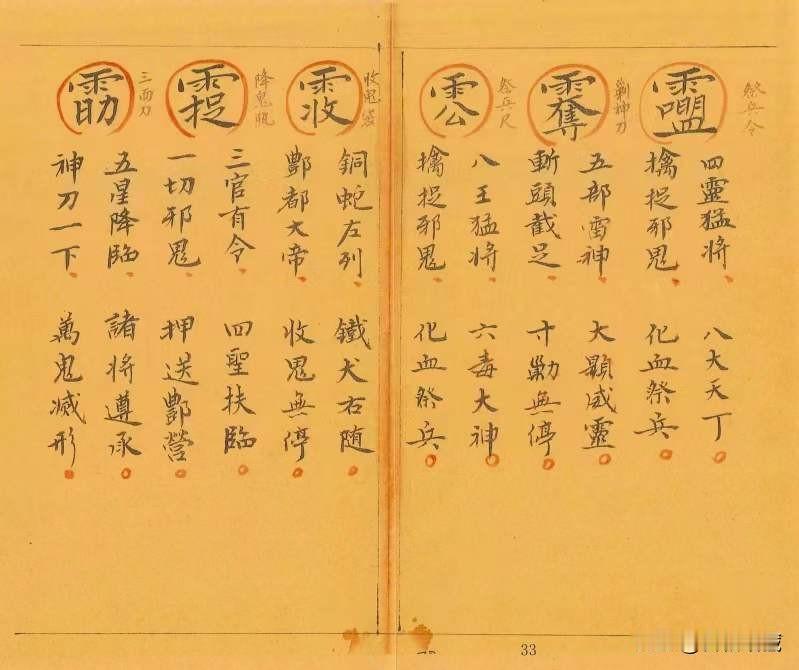 祭兵令
四靈猛將、八大天丁。
擒捉邪鬼、化血祭兵。
剿神刀
五部雷神、大顯威靈。
斬頭截足、寸剿無停。
祭兵尺
八王猛將、六毒大神。
擒捉邪鬼、化血祭兵。
收鬼袋
銅蛇左列、鐵犬右随。
酆都大帝、收鬼無停。
降鬼瓶
三官有令、四聖扶臨。
一切邪鬼、押送酆營。
三面刀
五星降臨、諸將遵承。
神刀一下、萬鬼滅形。
33